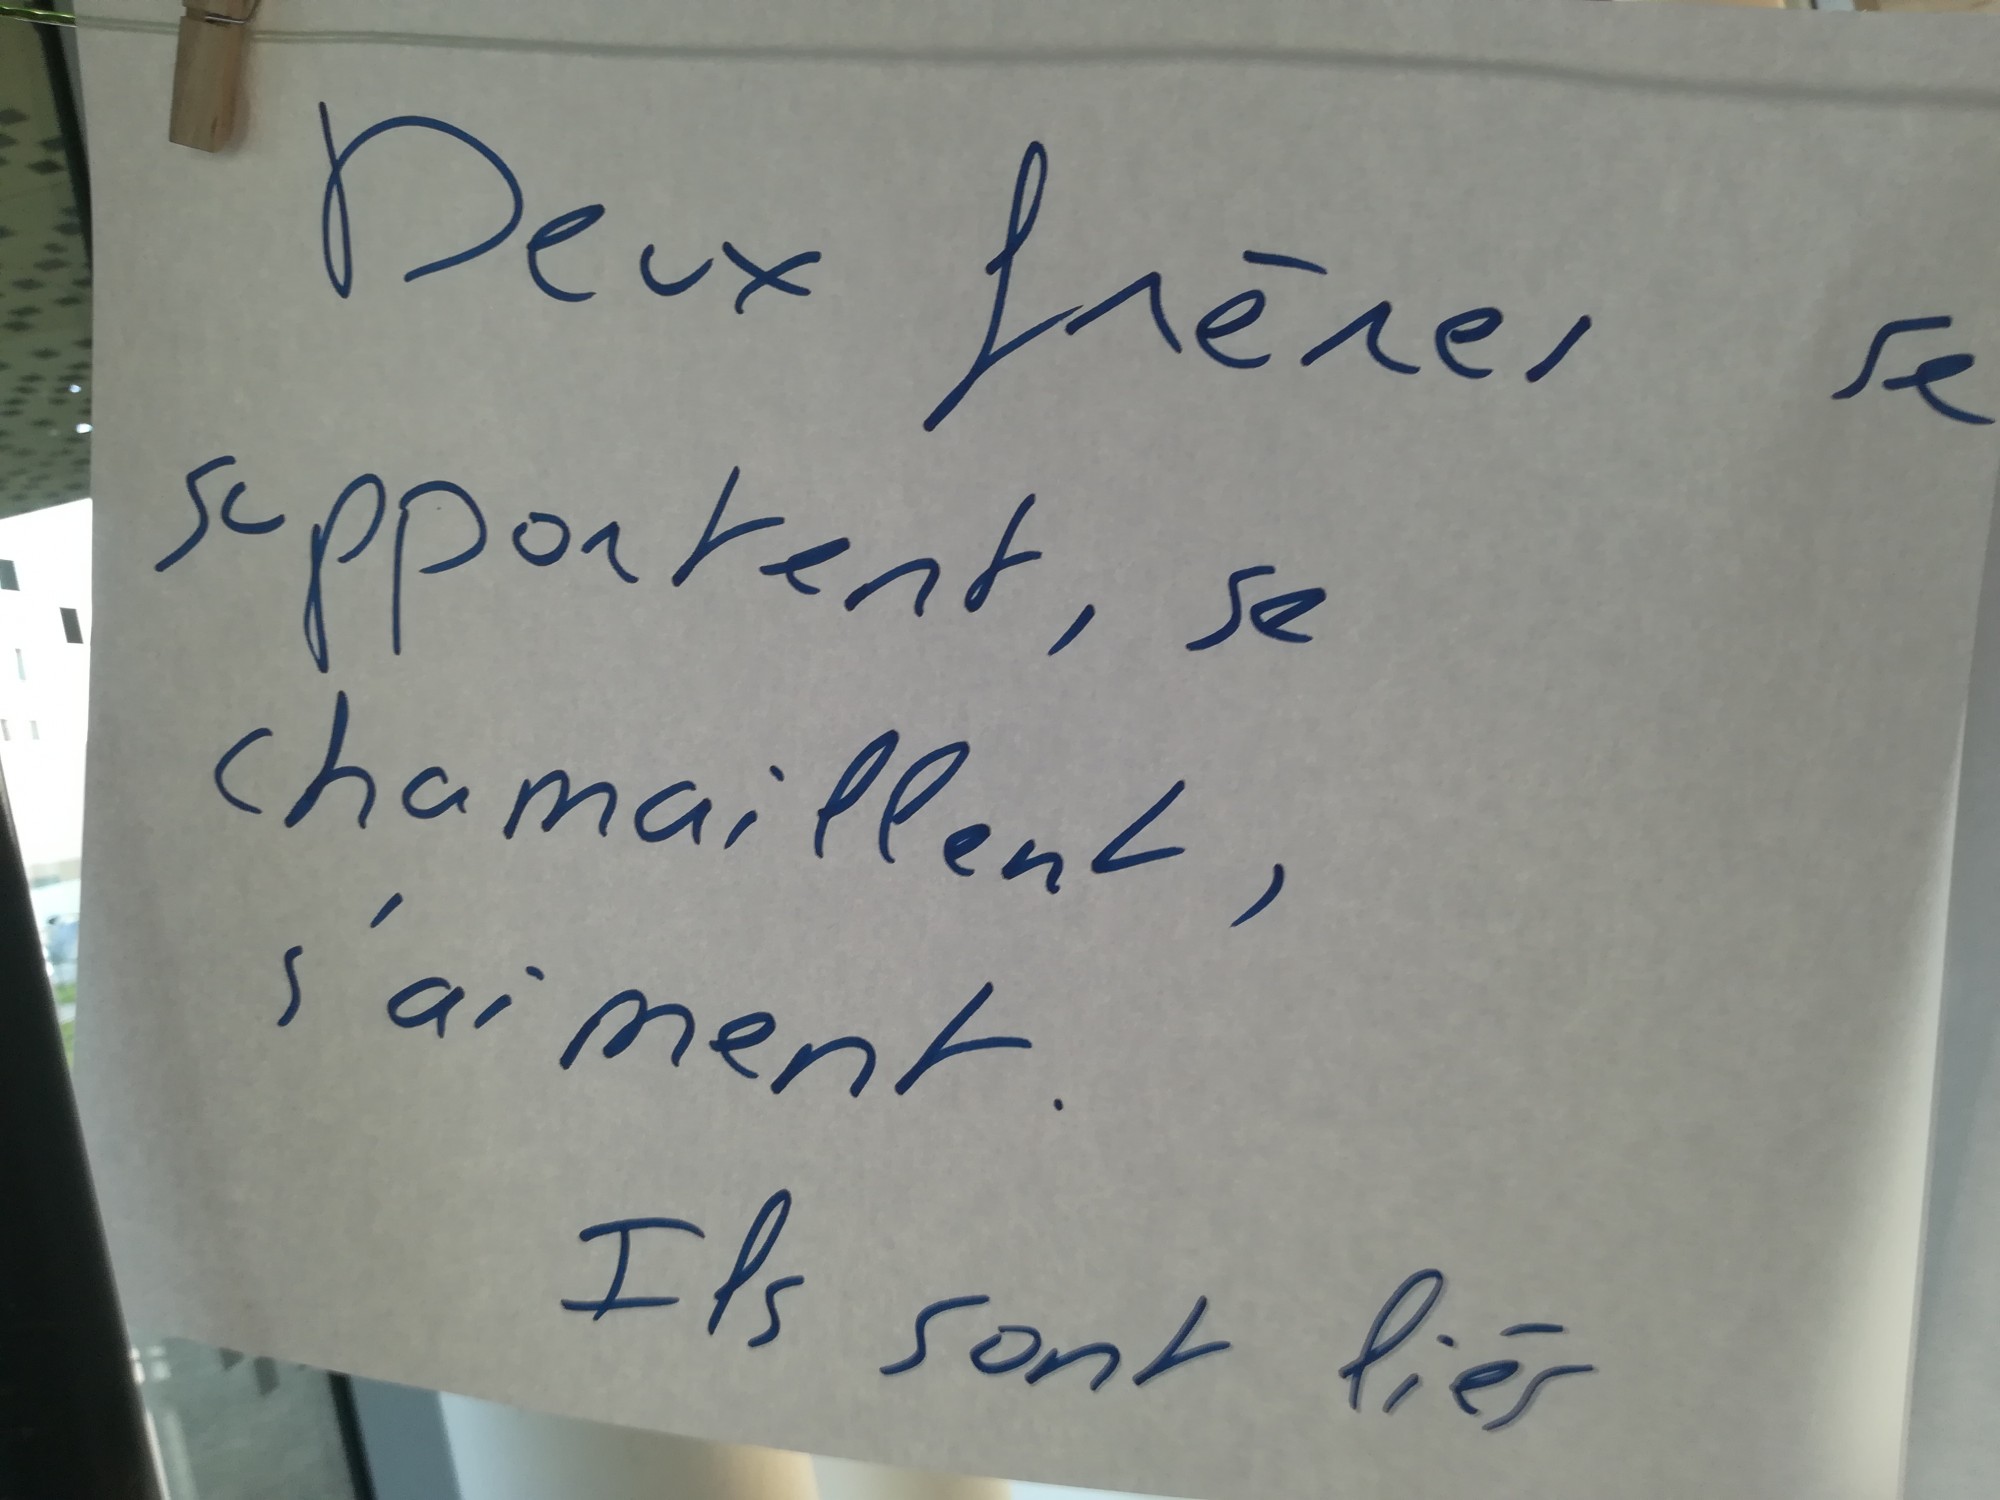 Deux frères se
supportent, se
chamaillent,
s'aiment.
Ils sont liés